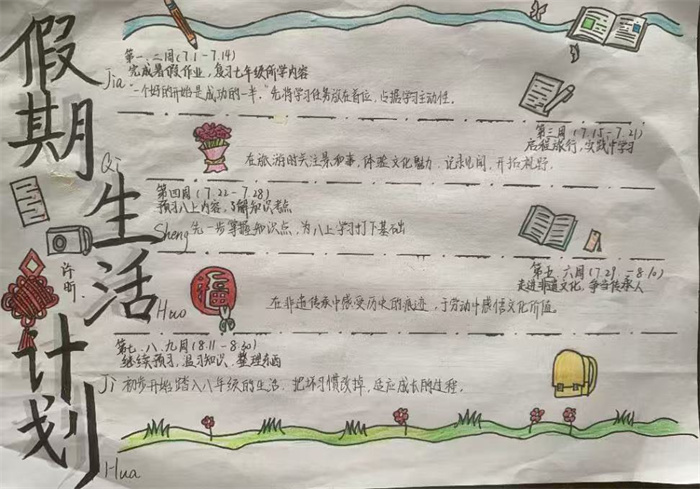 假期生活计划
Jia
Qi
Sheng
Huo
Ji
Hua
许昕
第一、二周(7.1-7.14)
完成暑假作业，复习七年级所学内容
"一个好的开始是成功的一半."先将学习任务放在首位，占据学习主动性.
第三周(7.15-7.21)
启程旅行，实践中学习
在旅游时关注景和事，体验文化魅力，记录见闻，开拓视野.
第四周(7.22-7.28)
预习八上内容，了解知识考点
先一步掌握知识点，为八上学习打下基础
第五、六周(7.29.-8.10)
走进非遗文化，争当传承人
福
在非遗传承中感受历史的痕迹，于劳动中感悟文化价值.
第七、八、九周(8.11-8.30)
继续预习，温习知识，整理东西
初步开始踏入八年级的生活，把坏习惯改掉，适应成长的过程.